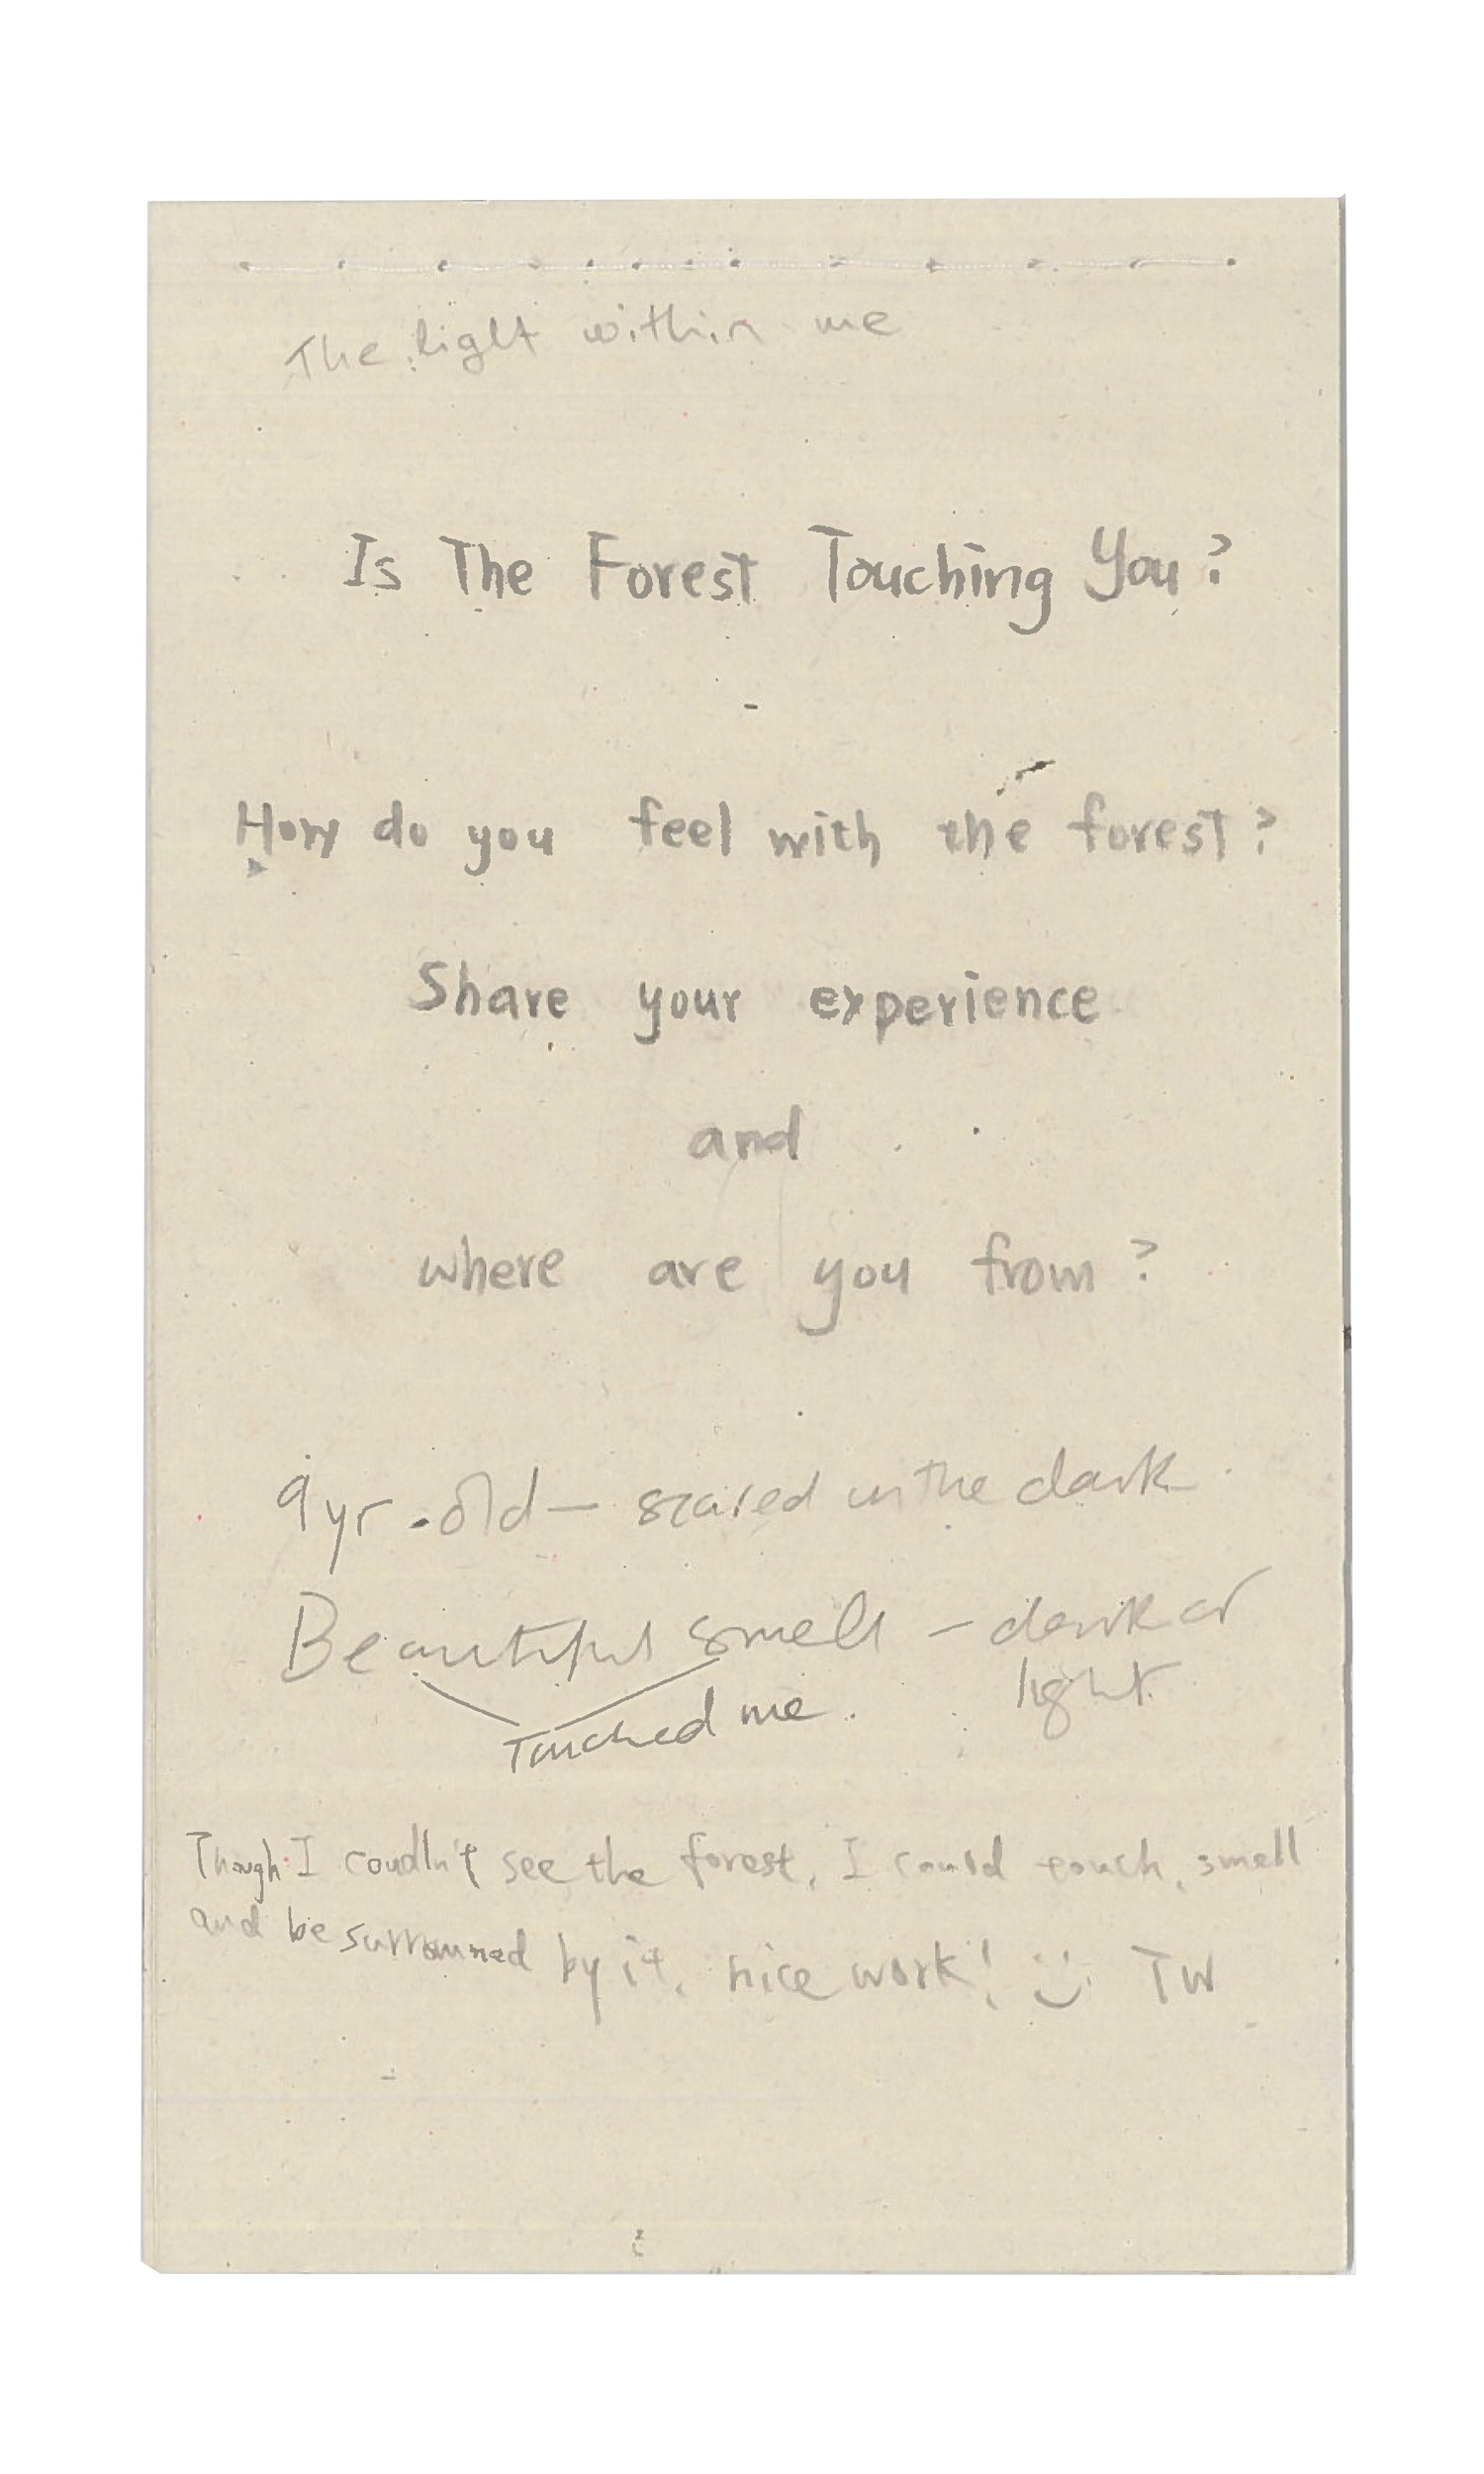 The light within me
Is The Forest Touching You?
How do you feel with the forest?
Share your experience
and
where are you from?
9 yr. old — scared in the dark
Beautiful smell — dark or
light
Touched me.
Though I coudln't see the forest, I could touch, smell
and be surrouned by it, nice work! :) TW